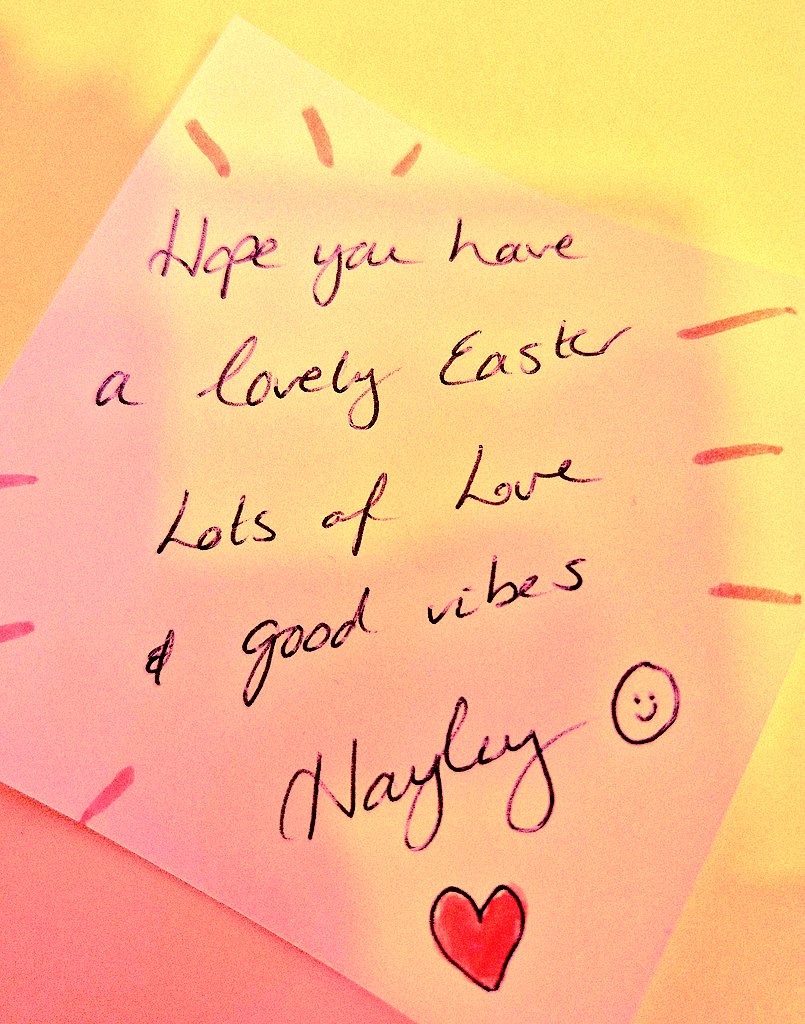 Hope you have
a lovely Easter
Lots of Love
& good vibes
Hayley